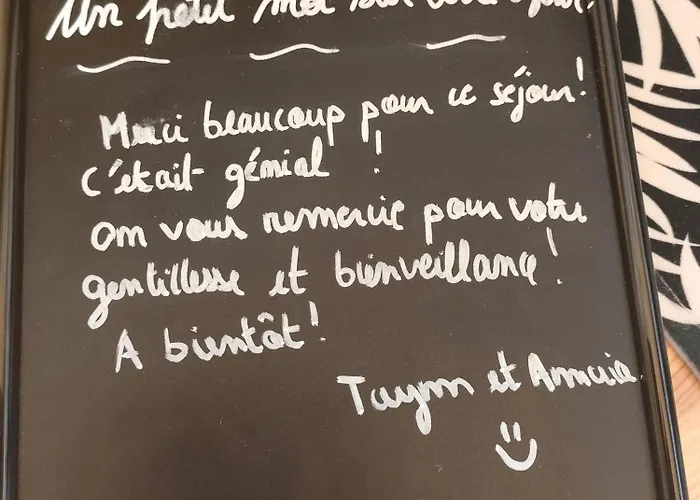 Un petit mot sur votre séjour.
Merci beaucoup pour ce séjour!
C'était génial !
on vous remercie pour votre
gentillesse et bienveillance!
A bientôt!
et